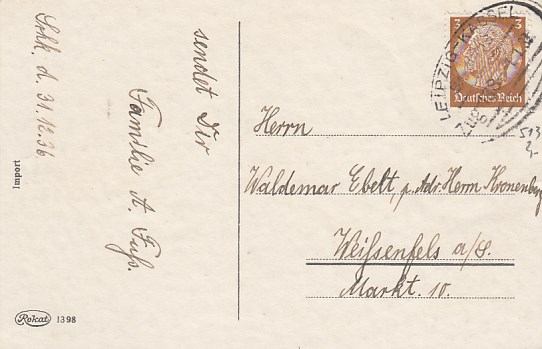 Srhk. d. 31.12.36
sendet Dir
Familie A. Fuß.
Import
Rokat 1398
3 3
Deutsches Reich
LEIPZIG-KASSEL
ZUG
Herrn
Waldemar Ebelt, p. Adr. Herrn Kronenberg
Weißenfels a/S.
Markt. 10.